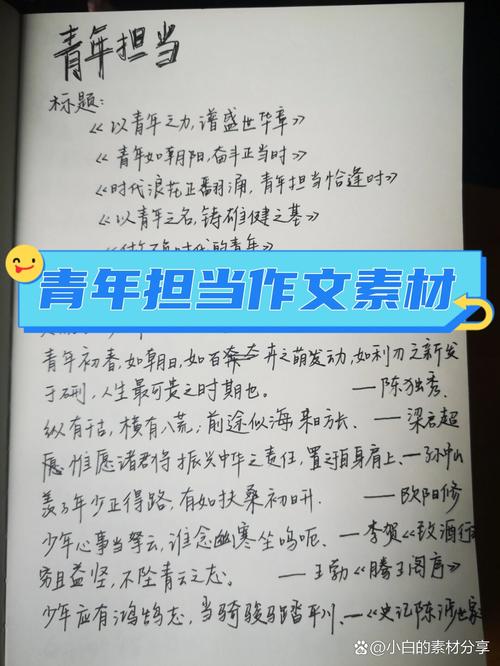 青年担当
标题:
《以青年之力,谱盛世华章》
《青年如朝阳,奋斗正当时》
《时代浪花正翻涌,青年担当恰逢时》
《以青年之名,铸雄健之基》
时代的青年》
青年担当作文素材
青年初春,如朝日,如百卉之萌发动,如利刃之新发
于硎,人生最可贵之时期也。 ——陈独秀
纵有千古,横有八荒;前途似海,来日方长。 ——梁启超
惟愿诸君将振兴中华之责任,置于自身肩上、——孙中山
羡子年少正得路,有如扶桑初日升. ——欧阳修
少年心事当拏云,谁念幽寒坐呜呃. ——李贺《致酒行
穷且益坚,不坠青云之志。 ——王勃《滕王阁序》
少年应有鸿鹄志,当骑骏马踏平川、——《史记陈涉世家
@小白的素材分享